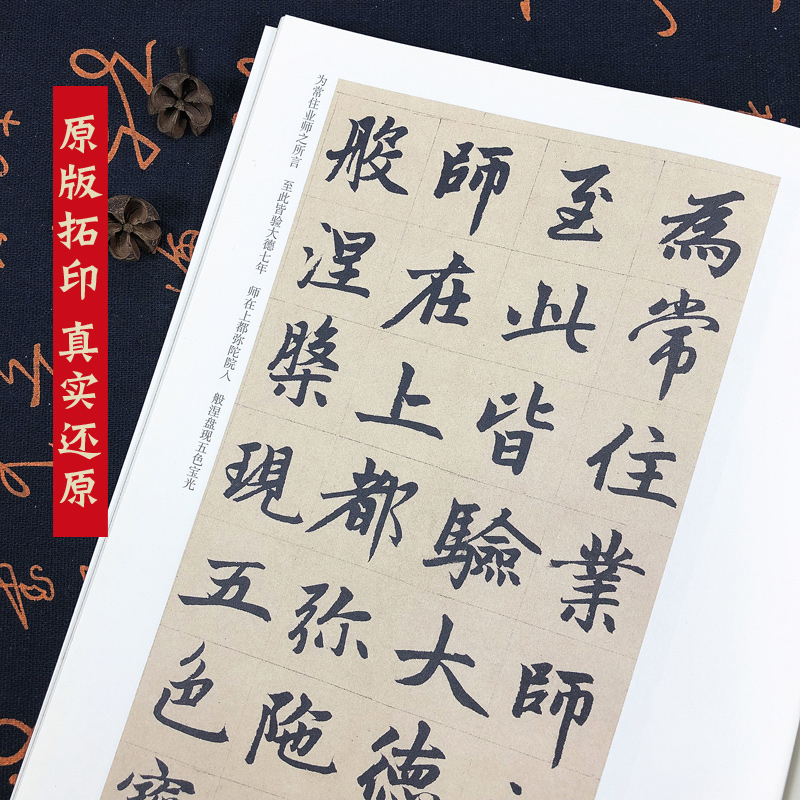 原版拓印 真实还原
为常住业师之所言 至此皆验大德七年 师在上都弥陀院入 般涅盘现五色宝光
為常住業師
至此皆驗大德
師在上都弥陁
般涅槃現五色